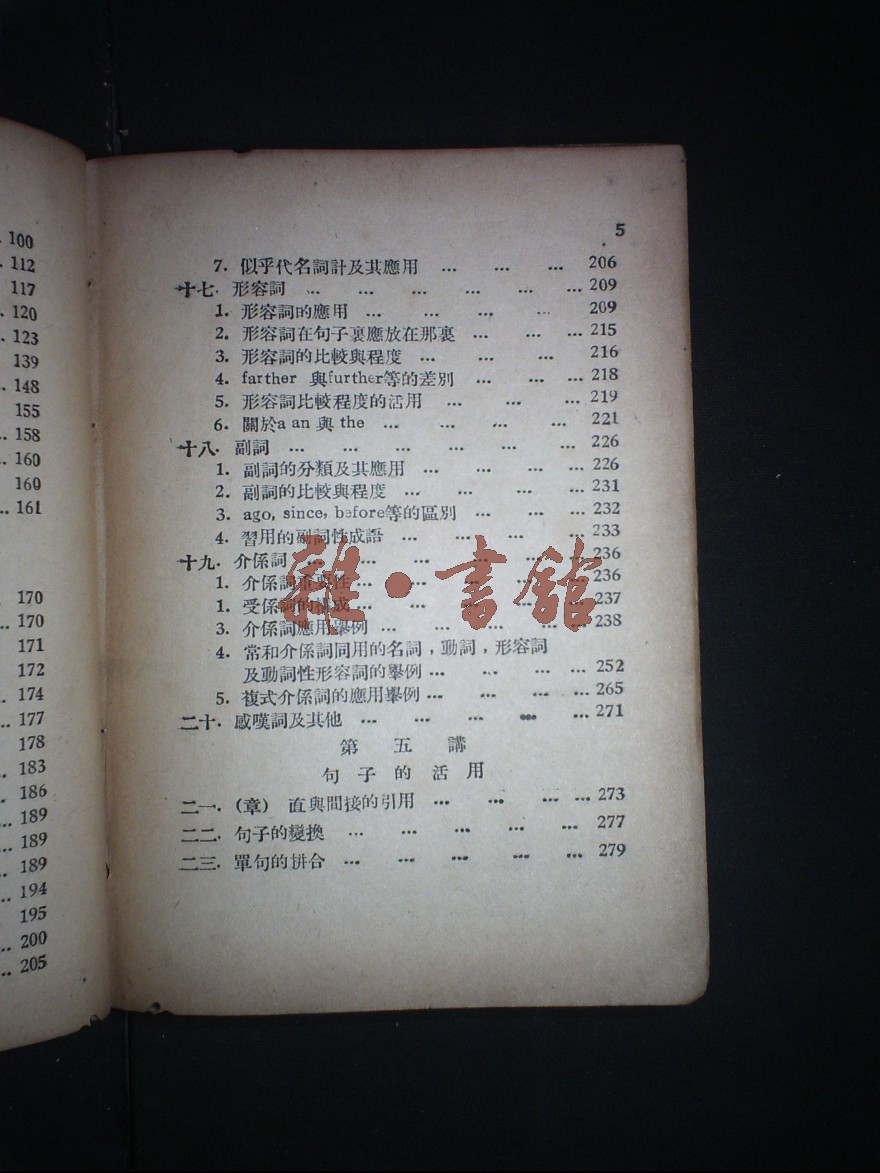 100
112
117
120
123
139
148
155
158
160
160
161
170
170
171
172
174
177
178
183
186
189
189
189
194
195
200
205
5
7. 似乎代名詞計及其應用 ... ... ... 206
十七. 形容詞 ... ... ... ... ... ... 209
1. 形容詞的應用 ... ... ... ... 209
2. 形容詞在句子裏應放在那裏 ... ... ... 215
3. 形容詞的比較與程度 ... ... ... ... 216
4. farther 與further等的差別 ... ... ... 218
5. 形容詞比較程度的活用 ... ... ... 219
6. 關於a an 與 the ... ... ... ... ... 221
十八. 副詞 ... ... ... ... ... ... 226
1. 副詞的分類及其應用 ... ... ... ... 226
2. 副詞的比較與程度 ... ... ... ... 231
3. ago, since, before等的區別 ... ... ... 232
4. 習用的副詞性成語 ... ... ... ... 233
十九. 介係詞 ... ... ... ... ... ... 236
1. 介係詞重要性 ... ... ... ... ... 236
1. 受係詞的構成 ... ... ... ... ... 237
3. 介係詞應用舉例 ... ... ... ... ... 238
4. 常和介係詞同用的名詞，動詞，形容詞
及動詞性形容詞的舉例 ... ... ... ... 252
5. 複式介係詞的應用舉例 ... ... ... ... 265
二十. 感嘆詞及其他 ... ... ... ... ... 271
第五講
句子的活用
二一. (章) 直與間接的引用 ... ... ... ... 273
二二. 句子的變換 ... ... ... ... ... 277
二三. 單句的拼合 ... ... ... ... ... 279
雜·書館